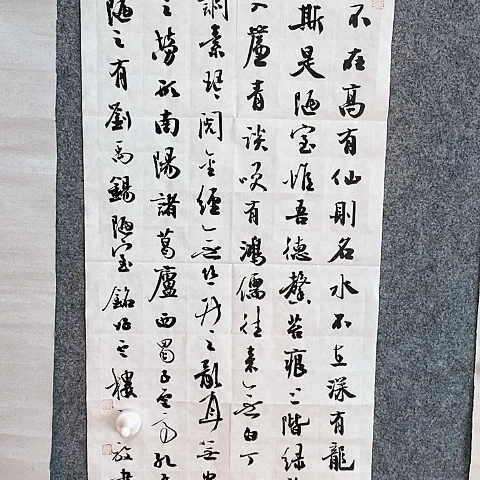 不在高有仙則名水不在深有龍
斯是陋室惟吾德馨苔痕上階緑
入簾青談咲有鴻儒往来無白丁
調素琴閲金經無絲竹之亂耳無
之勞形南陽諸葛廬西蜀子雲亭孔
陋之有劉禹錫陋室銘